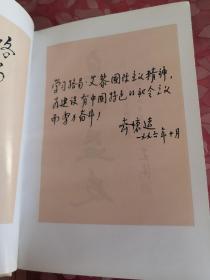 学习路易·艾黎国际主义精神，
为建设有中国特色的社会主义
而努力奋斗！
齐怀远
一九九六年十月